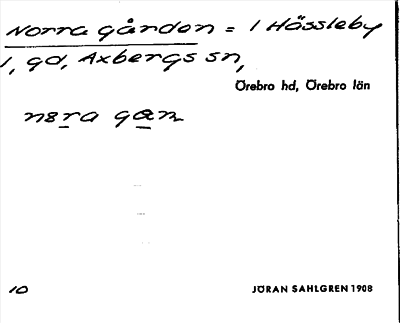 Norra gården = 1 Hässleby
1, gd, Axbergs sn,
Örebro hd, Örebro län
nɞra gan
10
JÖRAN SAHLGREN 1908